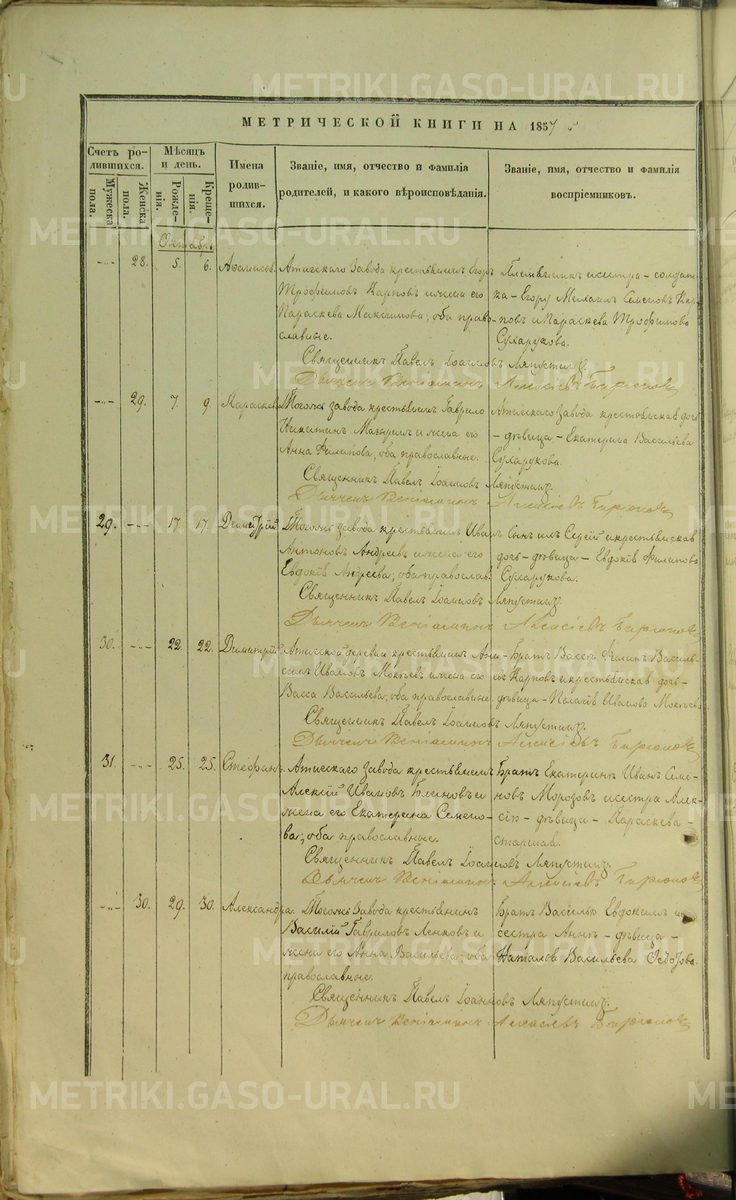 METRIKI.GASO-URAL.RU
МЕТРИЧЕСКОЙ КНИГИ НА 1857
Счетъ родившихся.
Мужеска пола.
Женска пола.
Мѣсяцъ и день.
Рожденія.
Крещенія.
Имена родившихся.
Званіе, имя, отчество и фамилія родителей, и какого вѣроисповѣданія.
Званіе, имя, отчество и фамилія воспріемниковъ.
28. 5. 6.
Атигскаго завода крестьянинъ Егоръ
Трофимовъ Карповъ и жена его
Параскева Максимова; оба право-
славные.
Егору Михаилъ Семеновъ Кар-
повъ и Параскева Трофимова
Сухарукова.
Священникъ Павелъ Іоанновъ Ляпустинъ
Дьячекъ Веніаминъ Алексѣевъ
29. 7. 9. Параскева
Тогожъ завода крестьянинъ Гаврило
Никитинъ и жена его
Анна Филипова, оба православные.
Атигскаго завода крестьянская дочь
дѣвица Екатерина Васильева
Сухарукова.
Священникъ Павелъ Іоанновъ Ляпустинъ
Дьячекъ Веніаминъ Алексѣевъ
29. 17. 17. Димитрій
Тогожъ завода крестьянинъ Иванъ
Антоновъ Андреевъ и жена его
Евдокія Андреева; оба православ.
Сынъ ихъ Сергій и крестьянская
дочь-дѣвица - Евдокія Филипова
Сухарукова.
Священникъ Павелъ Іоанновъ Ляпустинъ
Дьячекъ Веніаминъ Алексѣевъ
30. 22. 22. Димитрій
Атигской деревни крестьянинъ
Ивановъ и жена его
Васса Васильева; оба православные
Братъ Вассы Филипъ Василь-
евъ Карповъ и крестьянская дочь-
дѣвица - Пелагія Иванова
Священникъ Павелъ Іоанновъ Ляпустинъ
Дьячекъ Веніаминъ Алексѣевъ
31. 25. 25. Стефанъ
Атигскаго завода крестьянинъ
Алексій Ивановъ Блиновъ и
жена его Екатерина Семено-
ва; оба православные.
Братъ Екатерины Иванъ Семе-
новъ Морозовъ и сестра Алек-
сію - дѣвица - Параскева
старшая.
Священникъ Павелъ Іоанновъ Ляпустинъ
Дьячекъ Веніаминъ Алексѣевъ
30. 29. 30. Александра.
Тогожъ завода крестьянинъ
Василій Гавриловъ Ленковъ и
жена его Анна Васильева; оба
православные.
Братъ Василью Евдокимъ и
сестра Анны - дѣвица -
Наталья Васильева
Священникъ Павелъ Іоанновъ Ляпустинъ
Дьячекъ Веніаминъ Алексѣевъ